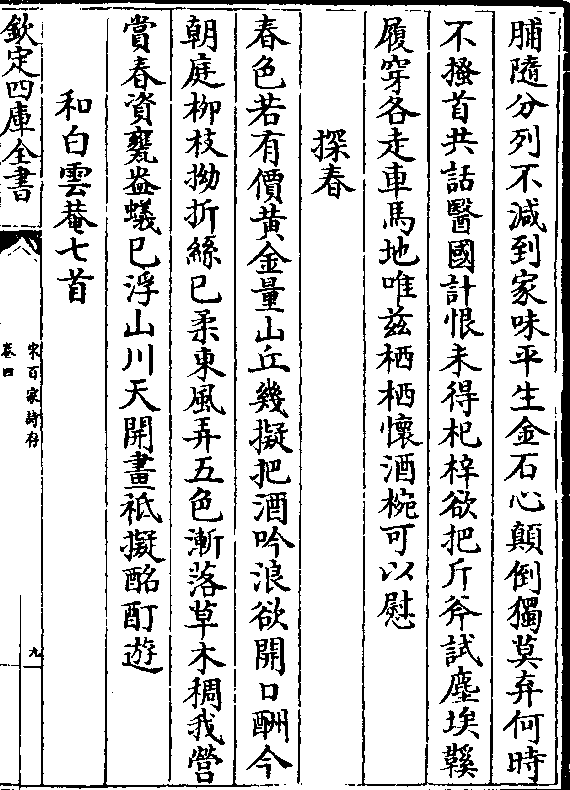 脯隨分列不減到家味平生金石心顛倒獨莫弃何時
不搔首共話醫國計恨未得杞梓欲把斤斧試塵埃鞵
履穿各走車馬地唯兹栖栖懷酒椀可以慰
探春
春色若有價黄金量山丘幾擬把酒吟浪欲開口酬今
朝庭柳枝拗折絲已柔東風弄五色漸落草木稠我營
賞春資甕盎蟻已浮山川天開畫祗擬酩酊遊
和白雲菴七首
欽定四庫全書
宋百家詩存
卷四
九